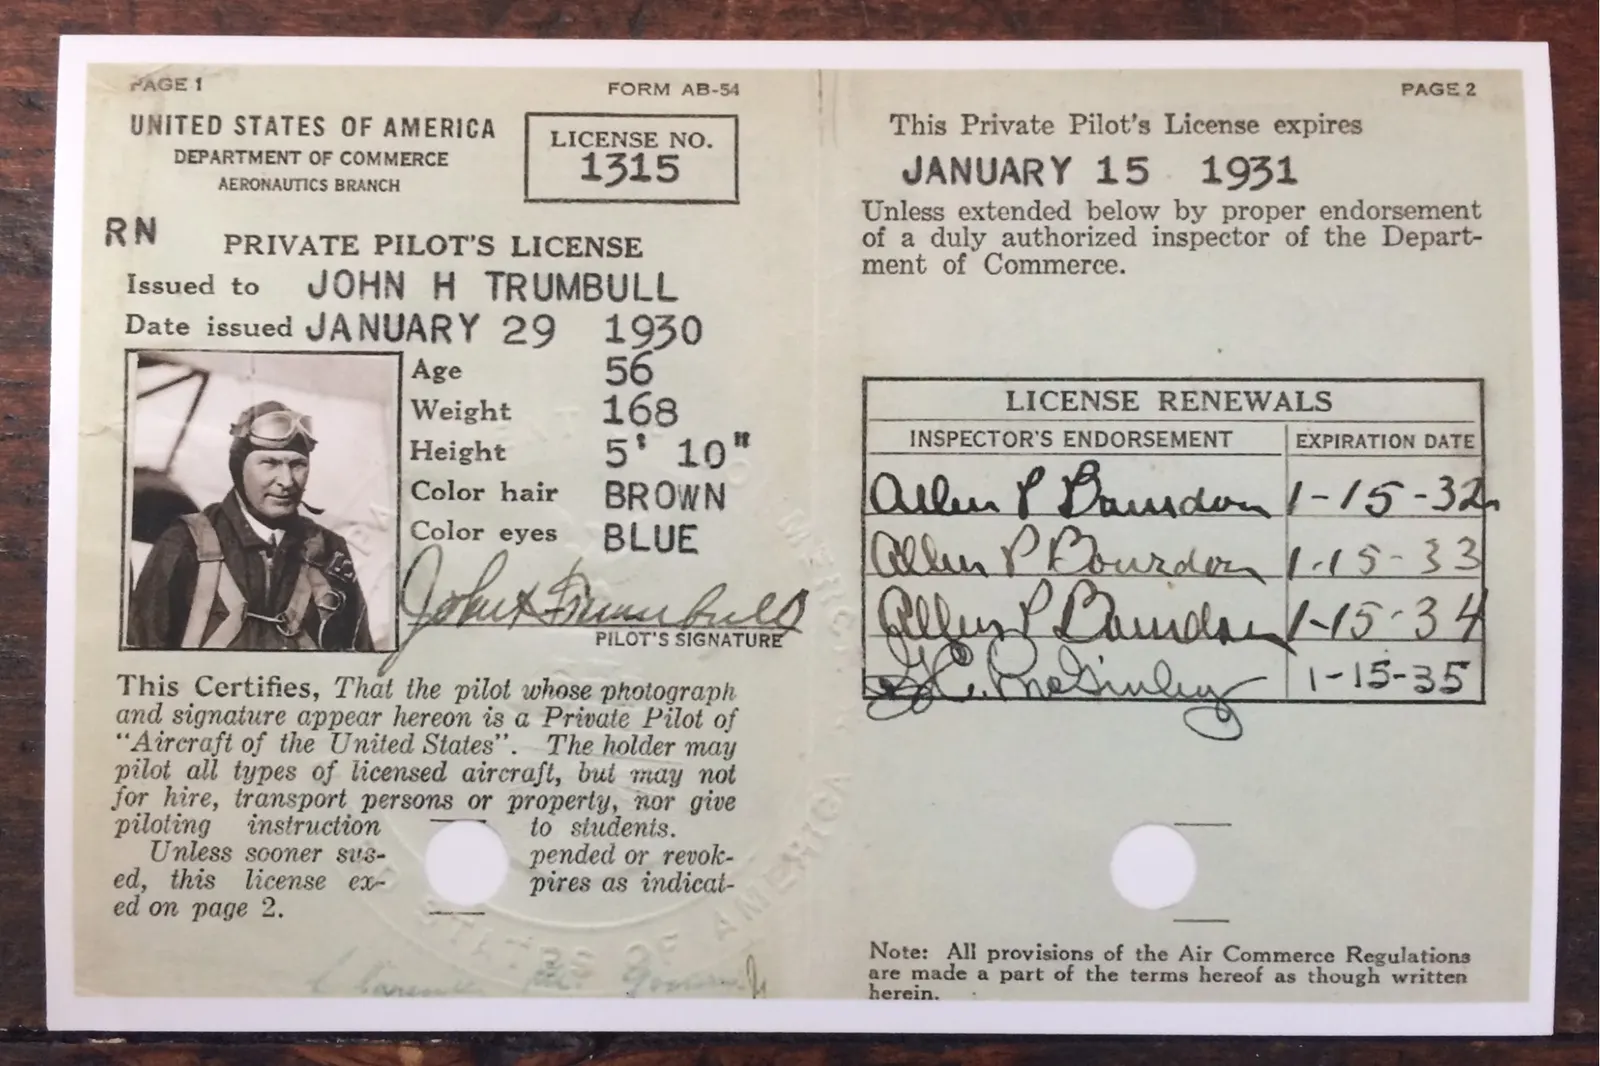 PAGE 1
FORM AB-54
UNITED STATES OF AMERICA
DEPARTMENT OF COMMERCE
AERONAUTICS BRANCH
LICENSE NO.
1315
RN
PRIVATE PILOT'S LICENSE
Issued to JOHN H TRUMBULL
Date issued JANUARY 29 1930
Age 56
Weight 168
Height 5' 10"
Color hair BROWN
Color eyes BLUE
John H Trumbull
PILOT'S SIGNATURE
This Certifies, That the pilot whose photograph
and signature appear hereon is a Private Pilot of
"Aircraft of the United States". The holder may
pilot all types of licensed aircraft, but may not
for hire, transport persons or property, nor give
piloting instruction to students.
Unless sooner sus- pended or revok-
ed, this license ex- pires as indicat-
ed on page 2.
STATES OF AMERICA
PAGE 2
This Private Pilot's License expires
JANUARY 15 1931
Unless extended below by proper endorsement
of a duly authorized inspector of the Depart-
ment of Commerce.
LICENSE RENEWALS
INSPECTOR'S ENDORSEMENT EXPIRATION DATE
Allen P Bourdon 1-15-32
Allen P Bourdon 1-15-33
Allen P Bourdon 1-15-34
McGinley 1-15-35
Note: All provisions of the Air Commerce Regulations
are made a part of the terms hereof as though written
herein.